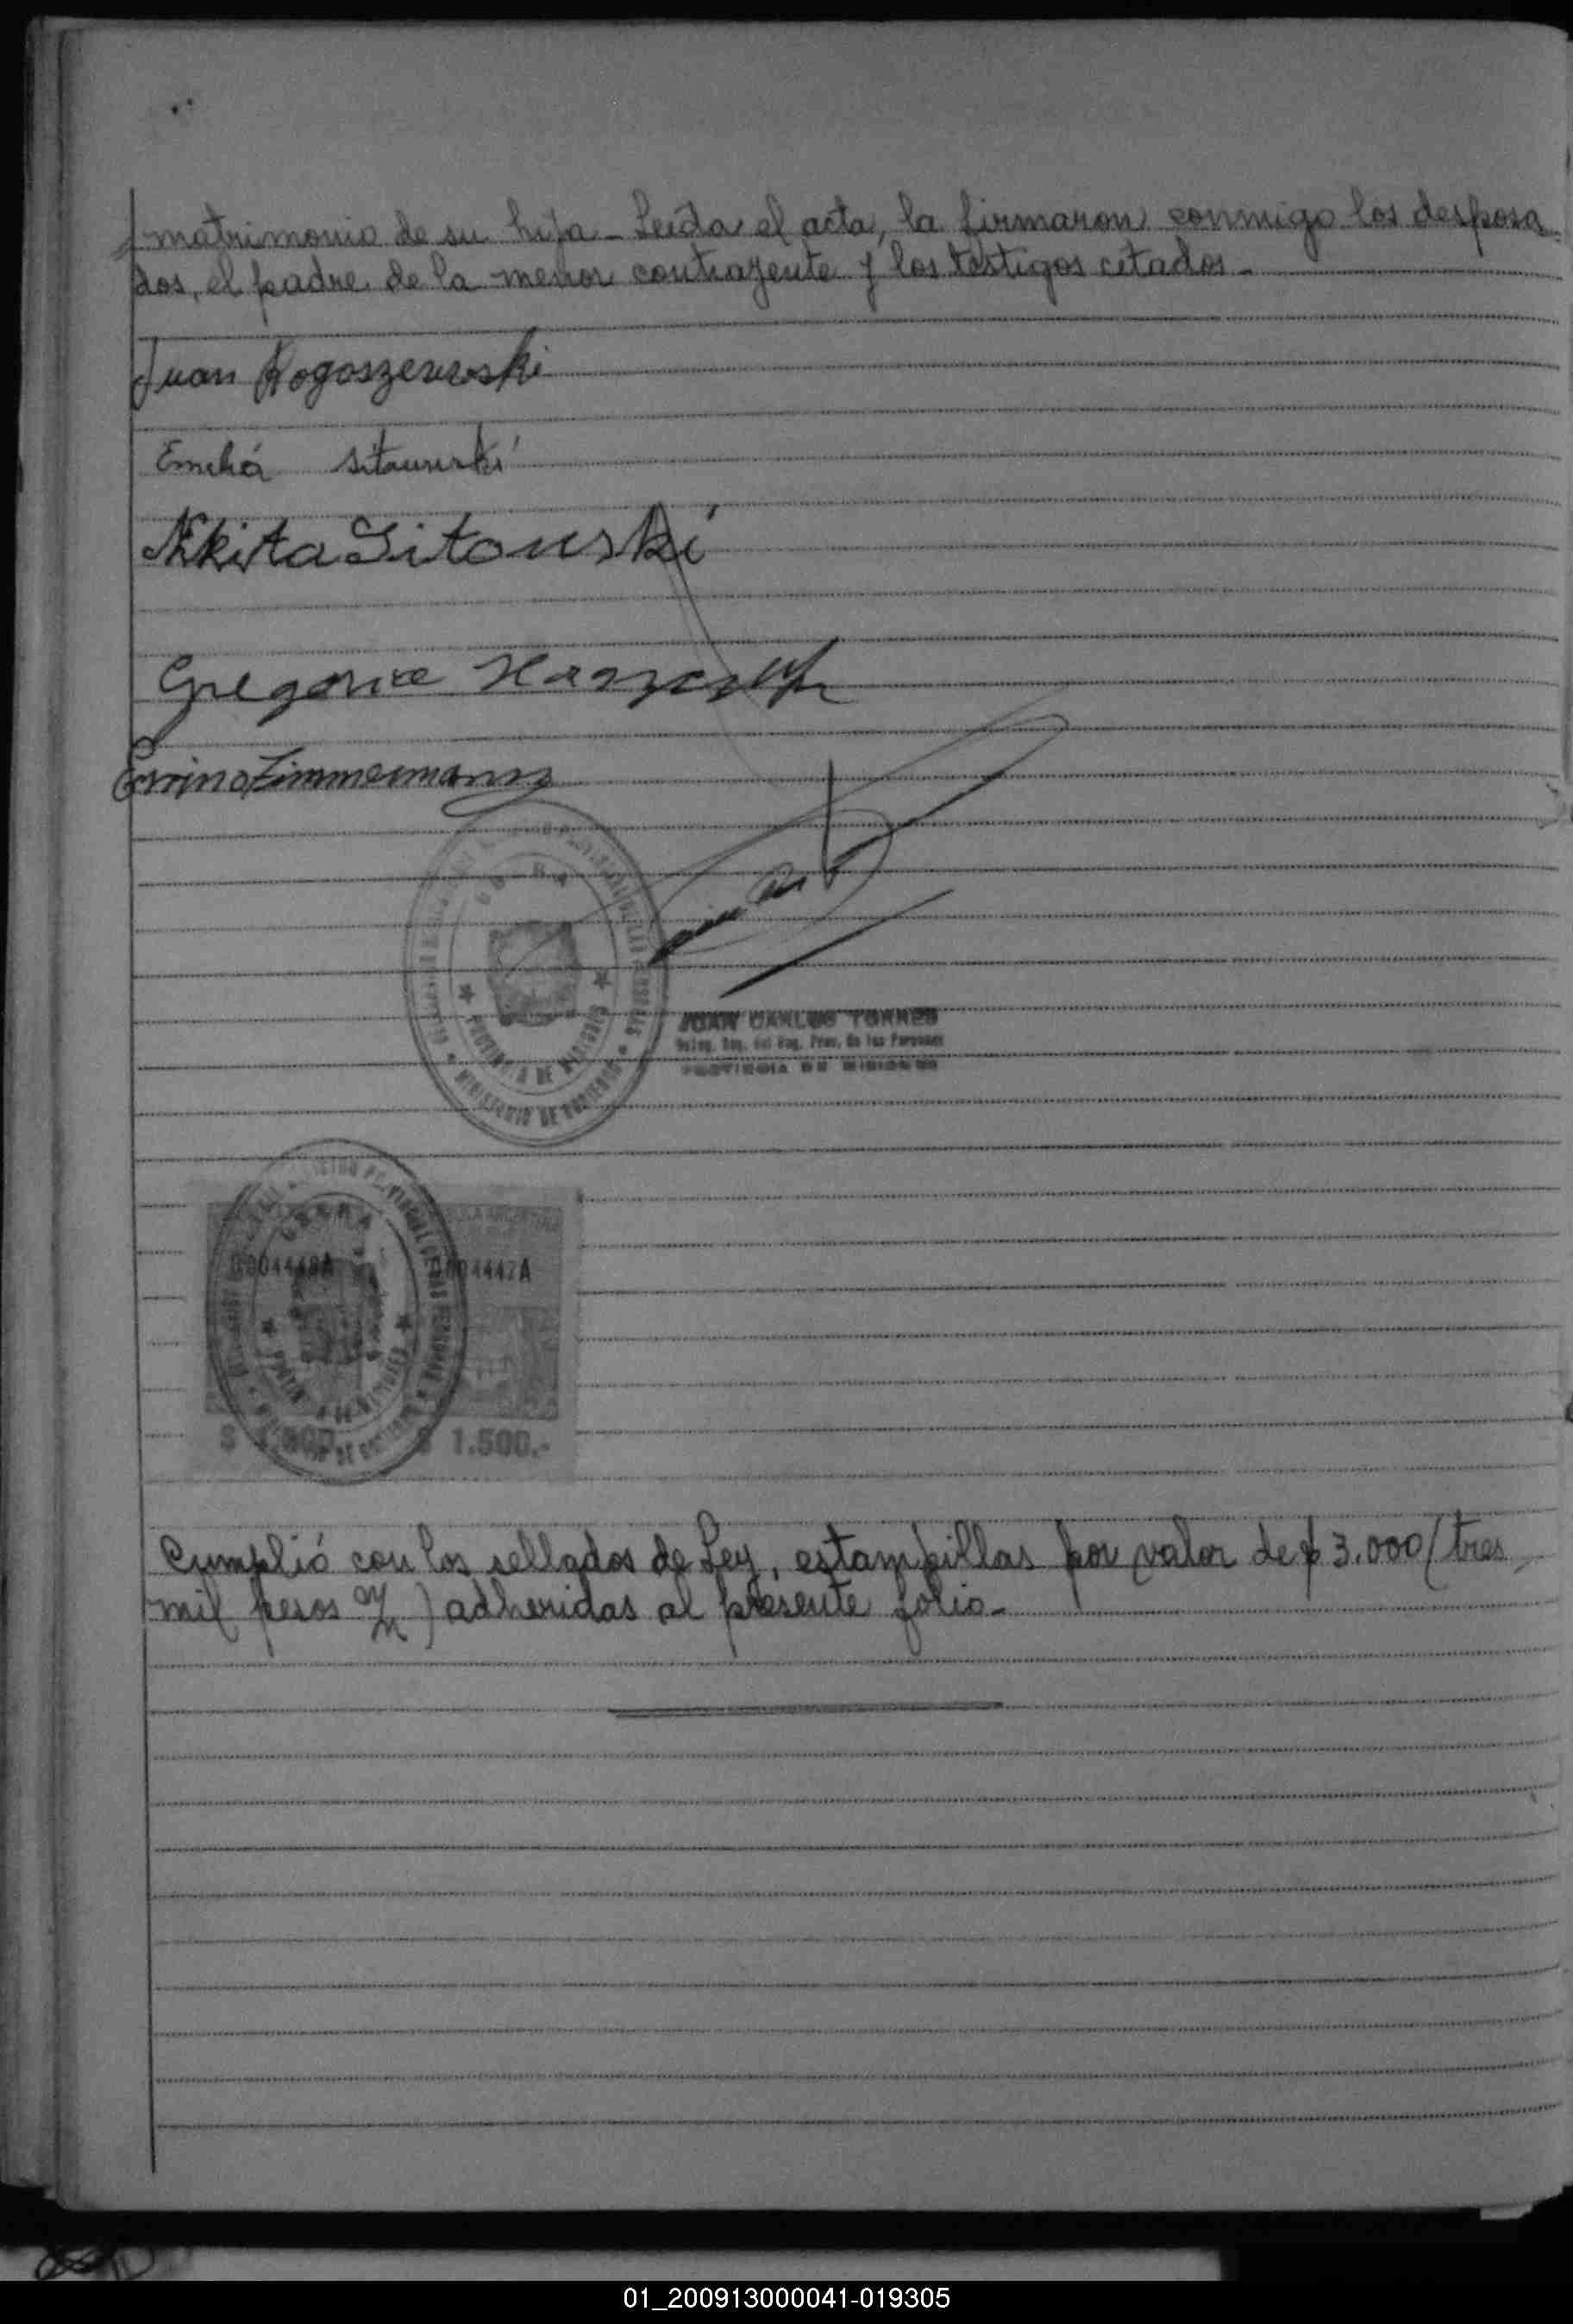 matrimonio de su hija - Leída el acta, la firmaron conmigo los desposa-
dos, el padre de la menor contrayente y los testigos citados -
Juan Rogoszewski
Emiliá Sitauuski
Nikita Sitouski
Gregorio
Zimmermann
JUAN CARLOS TORRES
PROVINCIA DE MISIONES
OBERA
PROVINCIA DE MISIONES
MINISTERIO DE GOBIERNO
0004442A
$ 1.500.-
Cumplió con los sellados de Ley, estampillas por valor de $ 3.000 (tres
mil pesos m/n) adheridas al presente folio -
01_200913000041-019305